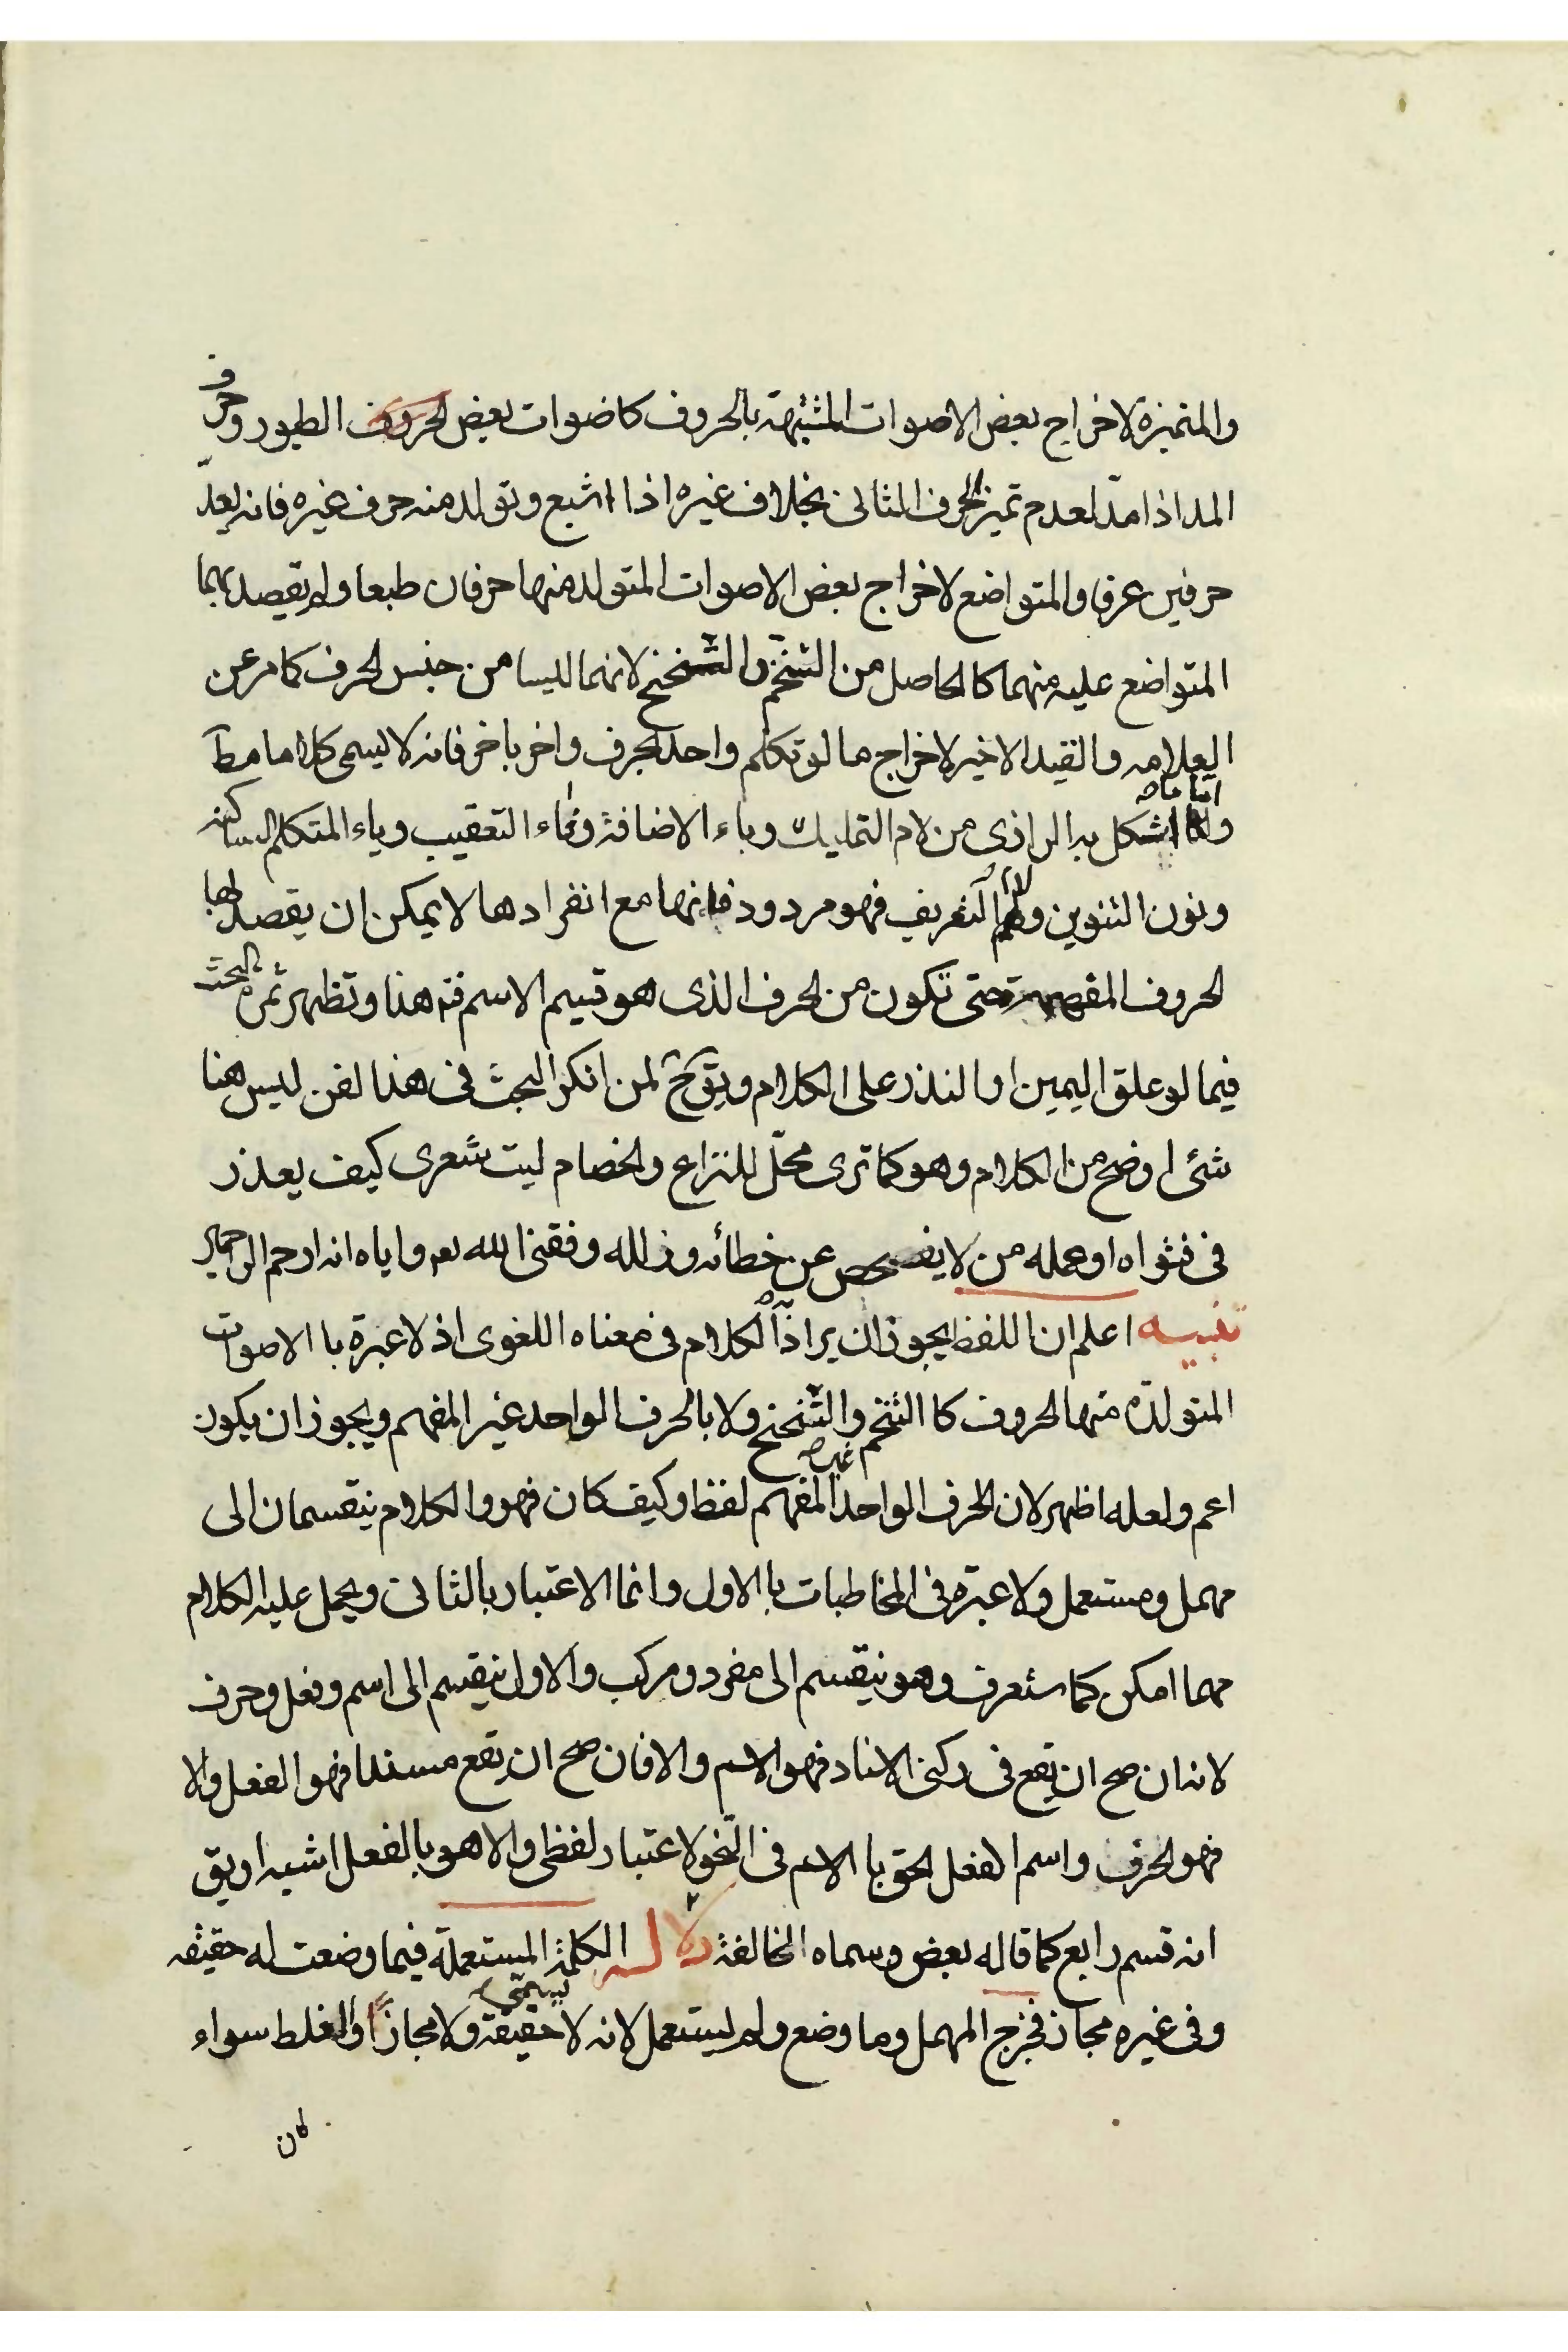 والمتميزة لاخراج بعض الاصوات المشبهة بالحروف كاصوات بعض الحروف الطيور وحرف
المد اذا مدّ لعدم تميز الحرف الثانى بخلاف غيره اذا اشبع وتولد منه حرف غيره فانه يعدّ
حرفين عرفا والمتواضع لاخراج بعض الاصوات المتولد منها حرفان طبعا ولم يقصد بهما
المتواضع عليه منهما كالحاصل من التنخّم والتنحنح لانهما ليسا من جنس الحرف كما مر عن
العلامه والقيد الاخير لاخراج ما لو تكلم واحد بحرف واخر باخر فانه لا يسمى كلاما مط
واما ما اشكل به الرازى من لام التمليك وباء الاضافة وفاء التعقيب وياء المتكلم الساكنه
ونون التنوين ولام التعريف فهو مردود فانها مع انفرادها لا يمكن ان يقصد لها
الحروف المفهمة حتى تكون من الحرف الذى هو قسيم الاسم فت هذا وتظهر ثمرة البحث
فيما لو علق اليمين او النذر على الكلام ويق ح لمن انكر البحث فى هذا لفن ليس هنا
شئ اوضح من الكلام وهو كما ترى محلّ للنزاع والخصام ليت شعرى كيف يعذر
فى فتواه او عمله من لا يفحص عن خطائه وزلله وفقنى الله تعه واياه انه ارحم الراحمين
تنبيه اعلم ان اللفظ يجوز ان يرادف الكلام فى معناه اللغوى اذ لا عبرة با الاصوت
المتولدّه منها الحروف كا التنخم والتنحنح ولا بالحرف الواحد غير المفهم ويجوز ان يكون
اعم ولعله اظهر لان الحرف الواحد غير المفهم لفظ وكيف كان فهو والكلام ينقسمان الى
مهمل ومستعمل ولا عبرة فى المخاطبات با الاول وانما الاعتبار بالثانى ويحمل عليه الكلام
مهما امكن كما ستعرف وهو ينقسم الى مفرد ومركب والاول ينقسم الى اسم وفعل وحرف
لانه ان صح ان يقع فى ركنى الاسناد فهو الاسم والا فان صح ان يقع مسندا فهو الفعل والا
فهو الحرف واسم الفعل الحق با الاسم فى النّحو لاعتبار لفظى والا هو بالفعل اشبه او يق
انه قسم رابع كما قاله بعض وسماه الخالفة دلالة الكلمة المستعملة فيما وضعت له حقيقه
وفى غيره مجاز فخرج المهمل وما وضع ولم يستعمل لانه لا يسمّى حقيقة ولا مجازا والغلط سواء
كان